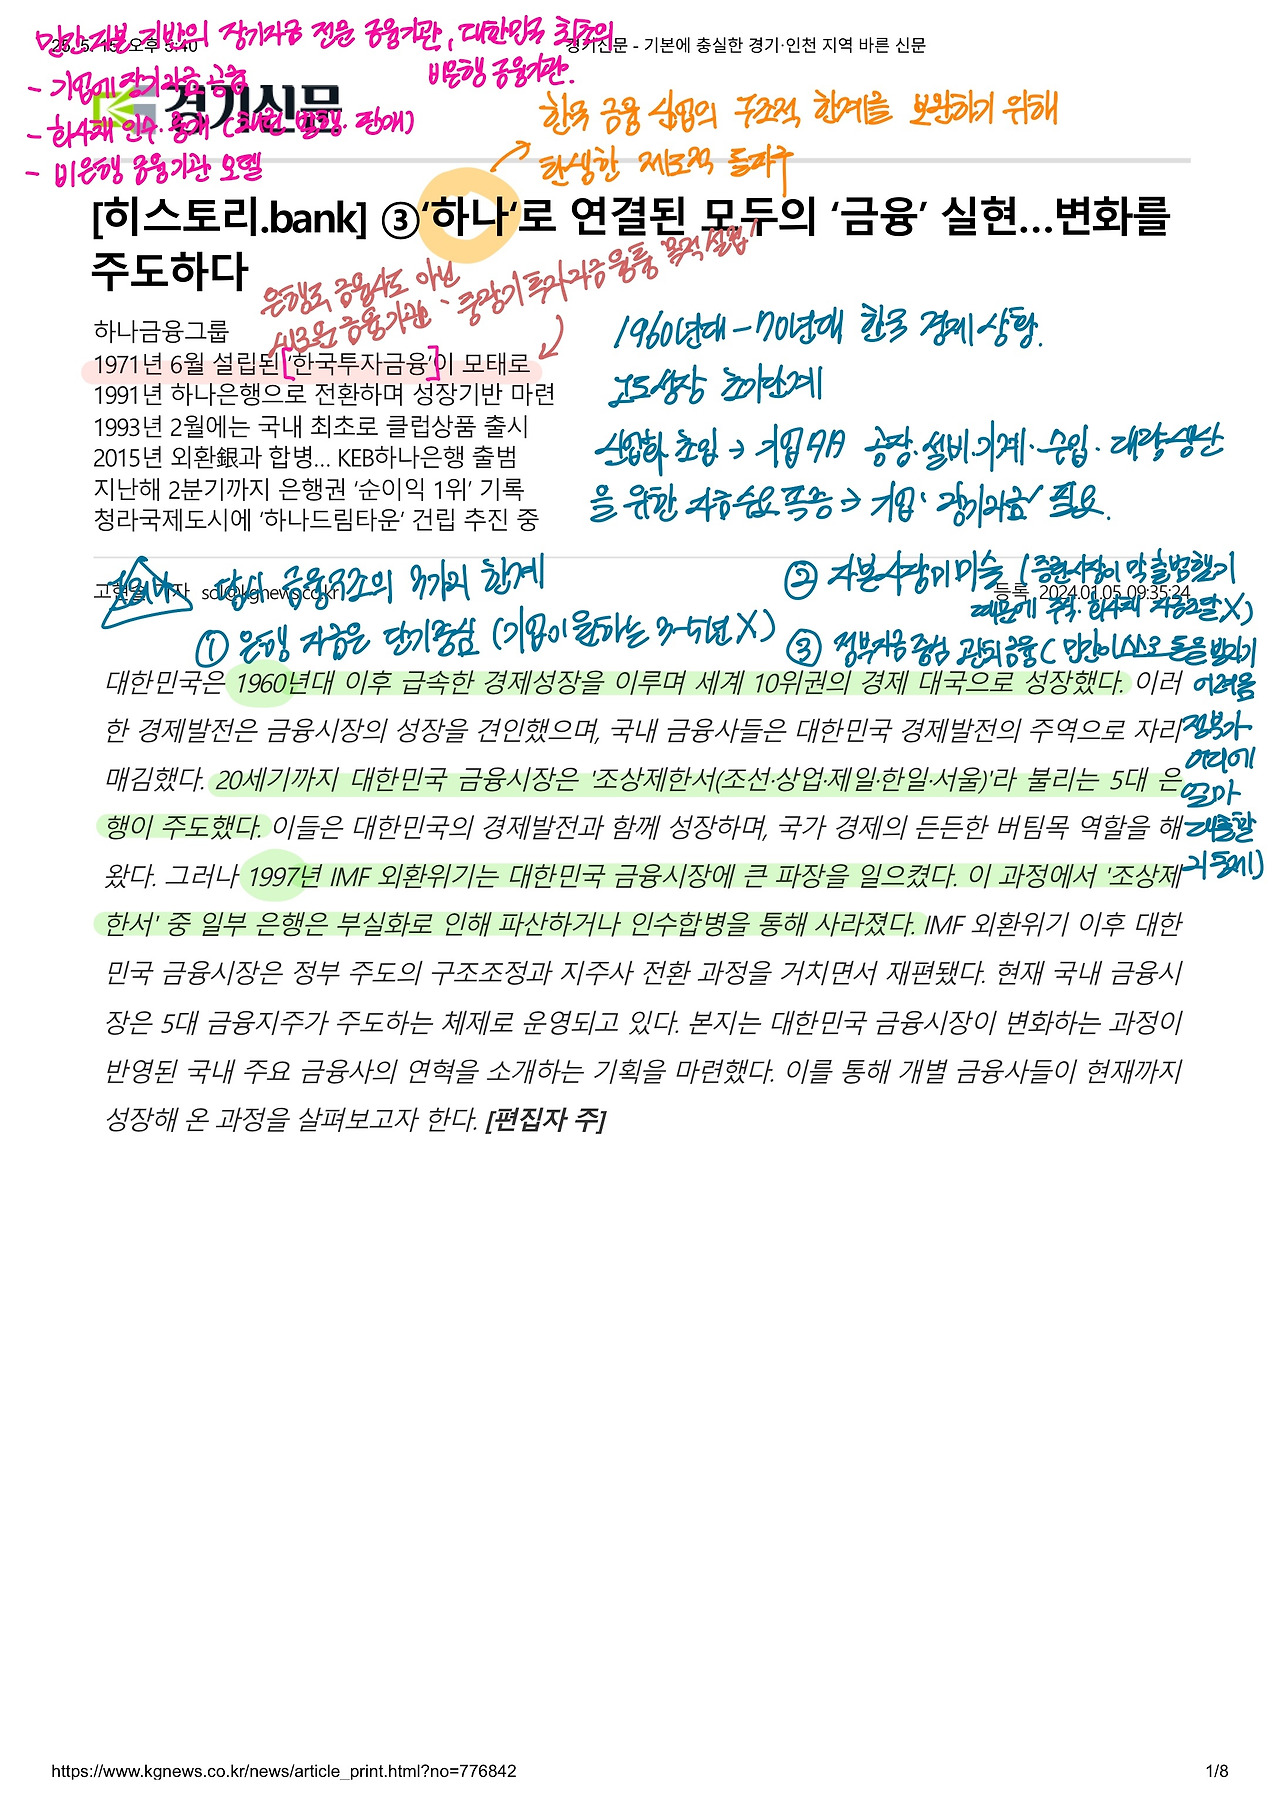 민간자본 기반의 장기자금 전문 금융기관, 대한민국 최초의
비은행 금융기관.
오후
경기신문 - 기본에 충실한 경기·인천 지역 바른 신문
- 기업에 장기자금 공급
경기신문
- 회사채 인수·중개 (채권 발행·판매)
- 비은행 금융기관 모델
한국 금융 산업의 구조적 한계를 보완하기 위해
탄생한 제도적 돌파구
[히스토리.bank] ③‘하나‘로 연결된 모두의 ‘금융’ 실현...변화를
주도하다
은행도 금융사도 아닌
새로운 금융기관 '중장기 투자자금 융통 목적 설립'
하나금융그룹
1971년 6월 설립된 ‘한국투자금융’이 모태로
1991년 하나은행으로 전환하며 성장기반 마련
1993년 2월에는 국내 최초로 클럽상품 출시
2015년 외환銀과 합병... KEB하나은행 출범
지난해 2분기까지 은행권 ‘순이익 1위’ 기록
청라국제도시에 ‘하나드림타운’ 건립 추진 중
1960년대-70년대 한국 경제상황.
고도성장 초기단계
산업화 초입 → 기업 공장·설비·기계·수입·대량생산
을 위한 자금수요 폭증 → 기업 '장기자금' 필요.
고현솔 기자 sol@kgnews.co.kr
등록 2024.01.05 09:35:24
당시 금융구조의 3가지 한계
① 은행 자금은 단기중심 (기업이 원하는 3-5년 X)
② 자본시장 미미술 (증권시장이 막 출범했기
때문에 주식·회사채 자금조달 X)
③ 정부자금 중심 관치금융 ( 민간이 스스로 돈을 빌리기
어려움
정부가
어디에
얼마
대출할
지 통제)
대한민국은 1960년대 이후 급속한 경제성장을 이루며 세계 10위권의 경제 대국으로 성장했다. 이러
한 경제발전은 금융시장의 성장을 견인했으며, 국내 금융사들은 대한민국 경제발전의 주역으로 자리
매김했다. 20세기까지 대한민국 금융시장은 '조상제한서(조선·상업·제일·한일·서울)'라 불리는 5대 은
행이 주도했다. 이들은 대한민국의 경제발전과 함께 성장하며, 국가 경제의 든든한 버팀목 역할을 해
왔다. 그러나 1997년 IMF 외환위기는 대한민국 금융시장에 큰 파장을 일으켰다. 이 과정에서 '조상제
한서' 중 일부 은행은 부실화로 인해 파산하거나 인수합병을 통해 사라졌다. IMF 외환위기 이후 대한
민국 금융시장은 정부 주도의 구조조정과 지주사 전환 과정을 거치면서 재편됐다. 현재 국내 금융시
장은 5대 금융지주가 주도하는 체제로 운영되고 있다. 본지는 대한민국 금융시장이 변화하는 과정이
반영된 국내 주요 금융사의 연혁을 소개하는 기획을 마련했다. 이를 통해 개별 금융사들이 현재까지
성장해 온 과정을 살펴보고자 한다. [편집자 주]
https://www.kgnews.co.kr/news/article_print.html?no=776842
1/8